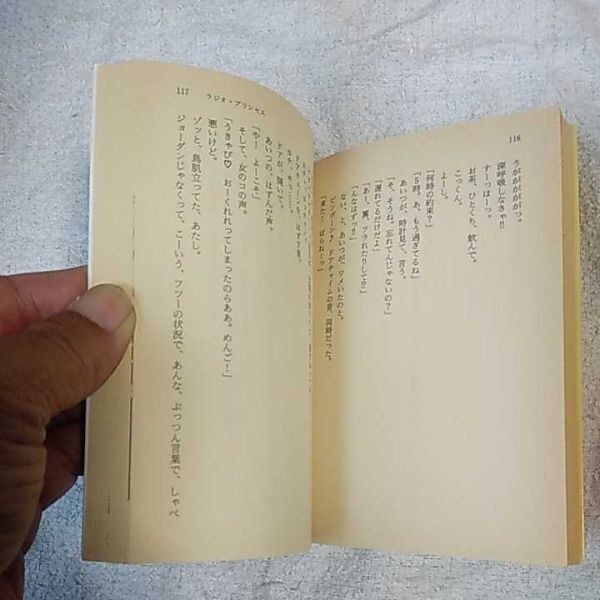 116
うがががががっ。
深呼吸しなきゃ!!
すーっはーっ。
お茶、ひとくち、飲んで。
こっくん。
よーし。
「何時の約束?」
あいつが、時計見て、言う。
「5時。あ、もう過ぎてるね」
「そ、そうね。忘れてんじゃないの?」
「遅れてるだけだよ」
「あー、異、フラれたりして?」
「んなはずっ!!」
ないっ、と、あいつが、ワメいたのと。
ピンポーン♪ ドアチャイムの音、同時だった。
「来た! ほらねーっ」
117
ラジオ・プリンセス
カチ、キッ……。
ドアが、開いて。
あいつの、はずんだ声。
「やー! よーこそ」
そして、女のコの声。
「うきゃぴ♡ おーくれれってしまったのらああ。めんご!」
ゾッと、鳥肌立ってた、あたし。
悪いけど。
ジョーダンじゃなくって、こーいう、フツーの状況で、あんな、ぶっつん言葉で、しゃべ